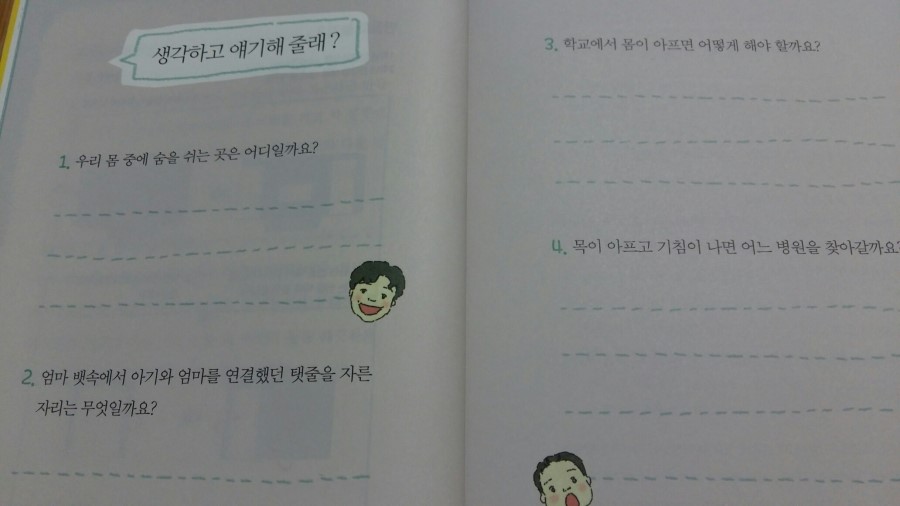 생각하고 얘기해 줄래?
1. 우리 몸 중에 숨을 쉬는 곳은 어디일까요?
2. 엄마 뱃속에서 아기와 엄마를 연결했던 탯줄을 자른
자리는 무엇일까요?
3. 학교에서 몸이 아프면 어떻게 해야 할까요?
4. 목이 아프고 기침이 나면 어느 병원을 찾아갈까요?